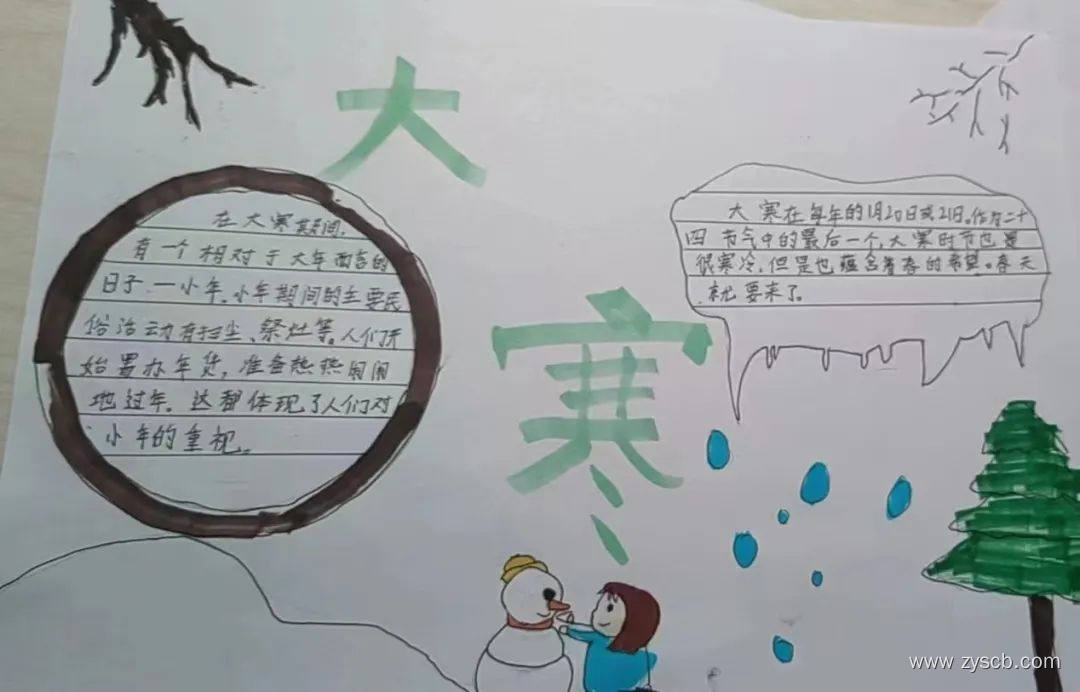 大
寒
在大寒期间,
有一个相对于大年而言的
日子.一小年。小年期间的主要民
俗活动有扫尘、祭灶等。人们开
始置办年货,准备热热闹闹
地过年。这都体现了人们对
小年的重视。
大寒在每年的1月20日或21日。作为二十
四节气中的最后一个,大寒时节也是
很寒冷,但是也蕴含着春的希望。春天
就要来了。
www.zyscb.com